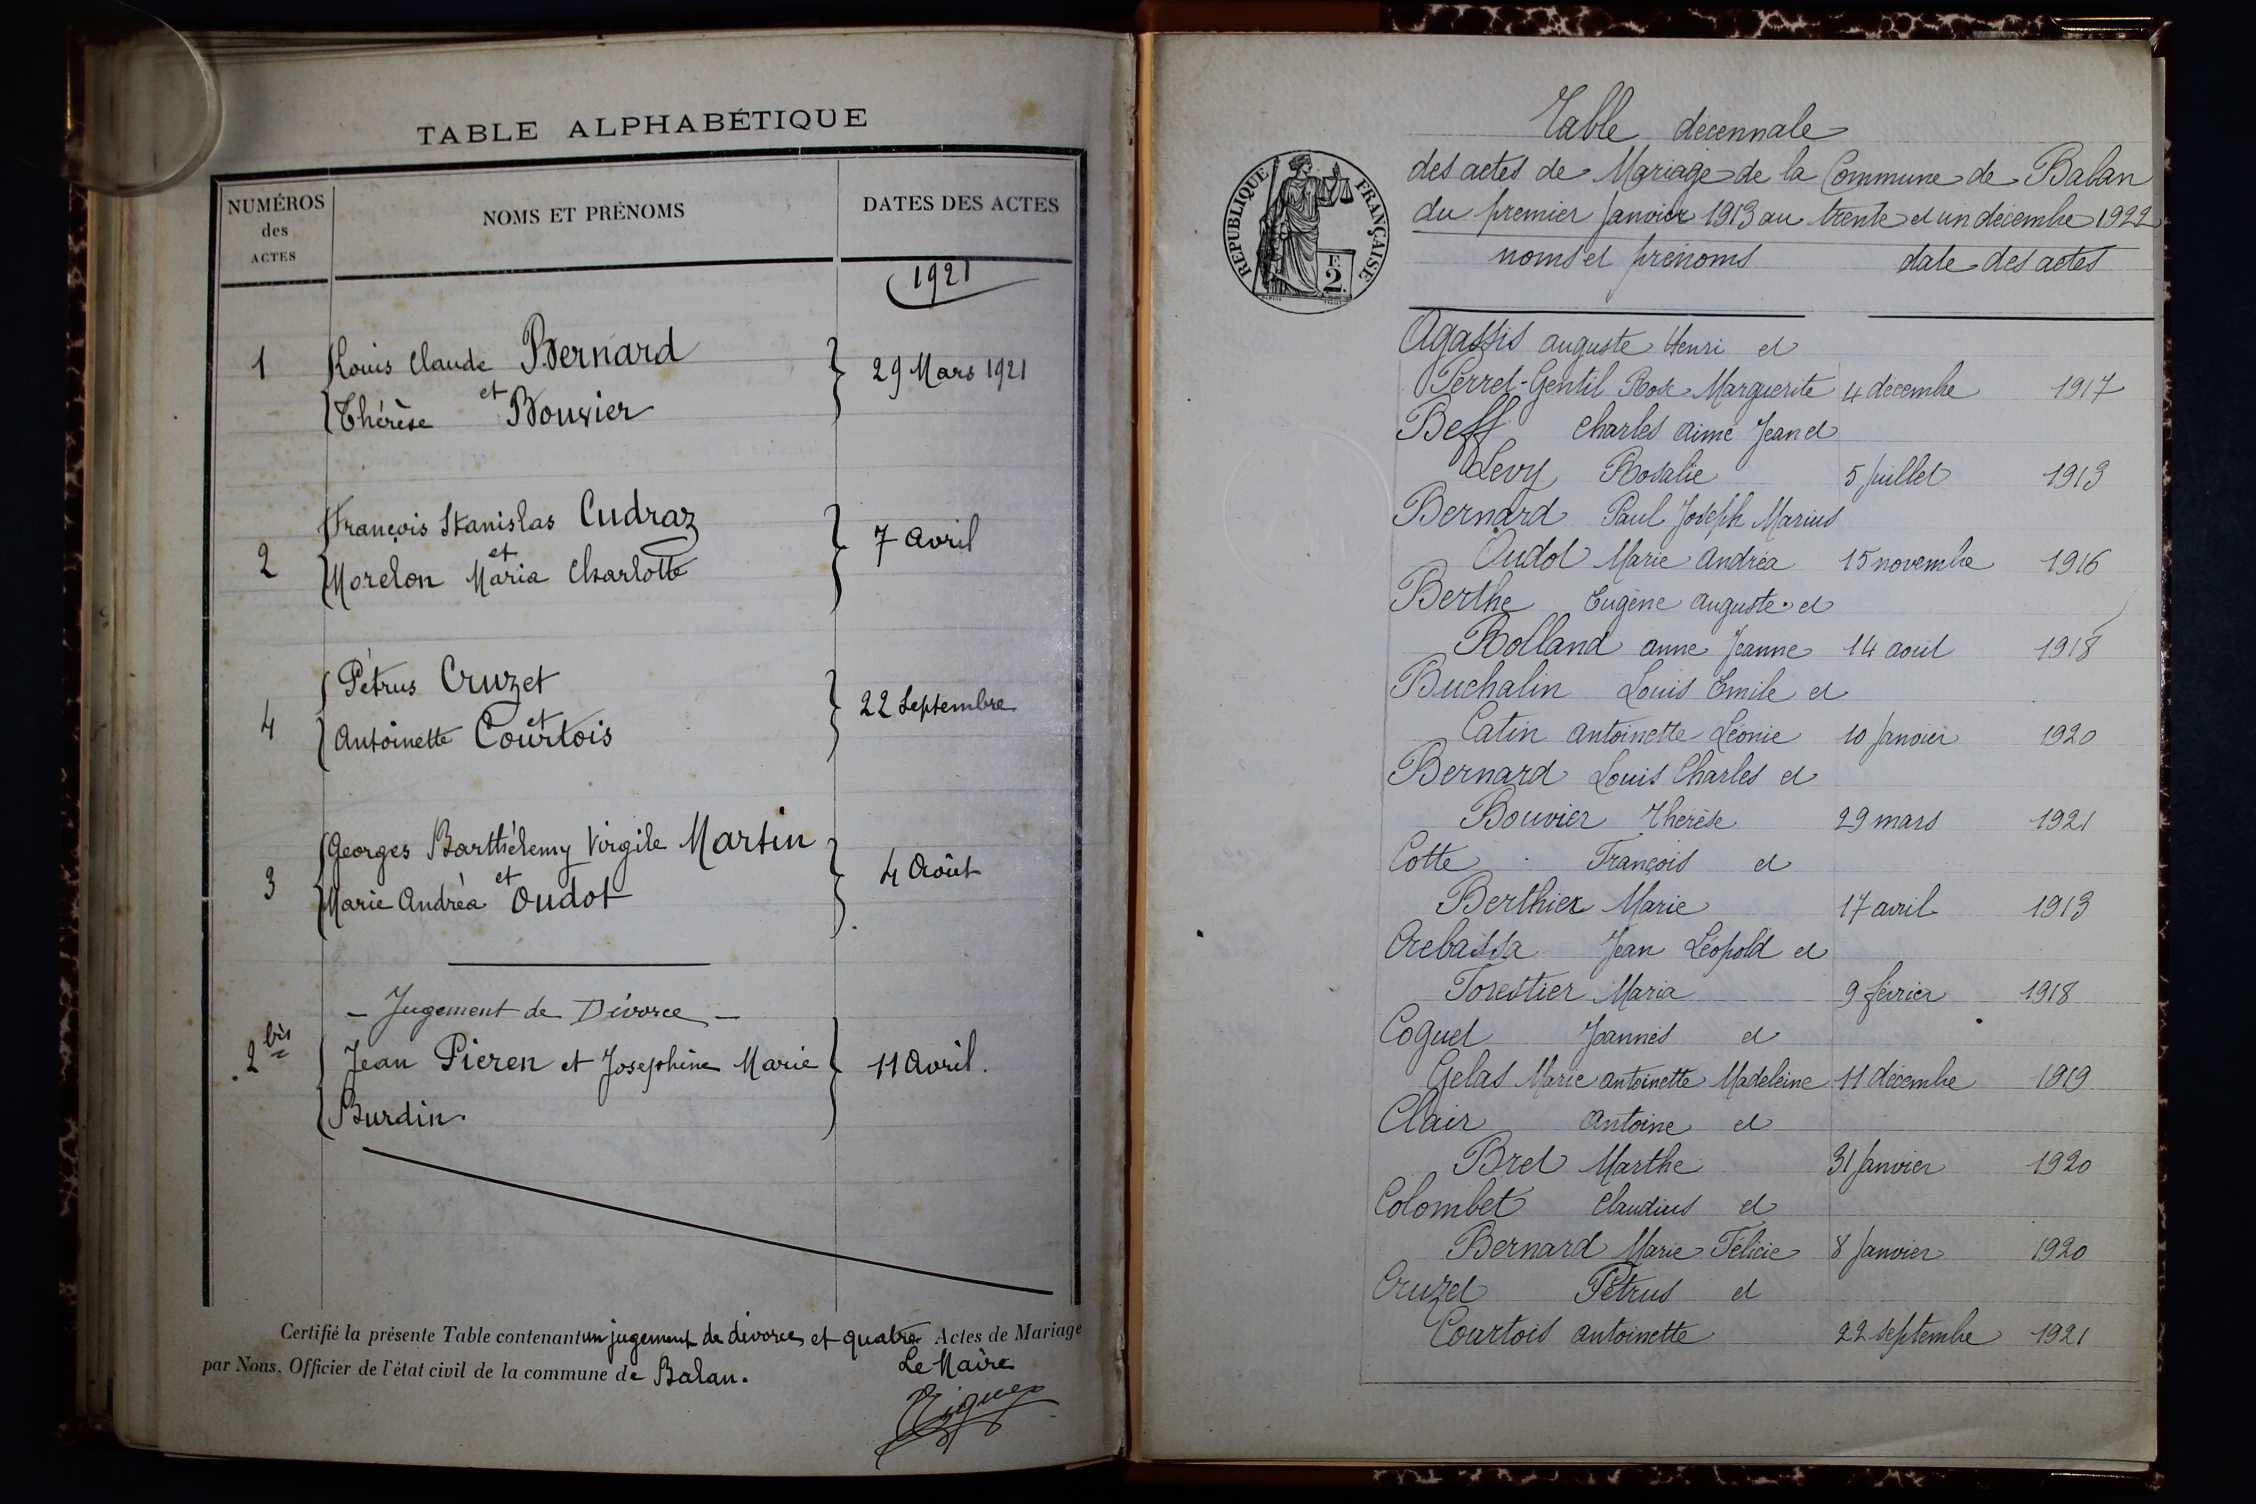 TABLE ALPHABÉTIQUE
NUMÉROS des ACTES
NOMS ET PRÉNOMS
DATES DES ACTES
1921
1
Louis Claude Bernard
et
Thérèse Bouvier
29 Mars 1921
2
François Stanislas Cudraz
et
Morelon Maria Charlotte
7 Avril
4
Pétrus Cruzet
et
Antoinette Courtois
22 Septembre
3
Georges Barthélemy Virgile Martin
et
Marie Andréa Oudot
4 Août
- Jugement de Divorce -
2 bis
Jean Pieren et Josephine Marie
Burdin.
11 Avril.
Certifié la présente Table contenant un jugement de divorce et quatre Actes de Mariage
par Nous, Officier de l'état civil de la commune de Balan.
Le Maire
RÉPUBLIQUE FRANÇAISE
2 F.
Table decennale
des actes de Mariage de la Commune de Balan
du premier Janvier 1913 au trente et un décembre 1922
noms et prénoms date des actes
Agassis auguste Henri et
Perret-Gentil Rose Marguerite 4 décembre 1917
Beff Charles Aimé Jean et
Levy Rosalie 5 Juillet 1913
Bernard Paul Joseph Marius
Oudot Marie Andréa 15 novembre 1916
Berthe Eugène Auguste et
Rolland anne Jeanne 14 aout 1918
Buchalin Louis Emile et
Catin Antoinette Léonie 10 Janvier 1920
Bernard Louis Charles et
Bouvier Thérèse 29 mars 1921
Cotte François et
Berthier Marie 17 avril 1913
Crebassa Jean Léopold et
Forestier Maria 9 février 1918
Coguet Joannès et
Gelas Marie antoinette Madeleine 11 décembre 1919
Clair Antoine et
Bret Marthe 31 Janvier 1920
Colombet Claudius et
Bernard Marie Félicie 8 Janvier 1920
Cruzet Pétrus et
Courtois antoinette 22 septembre 1921